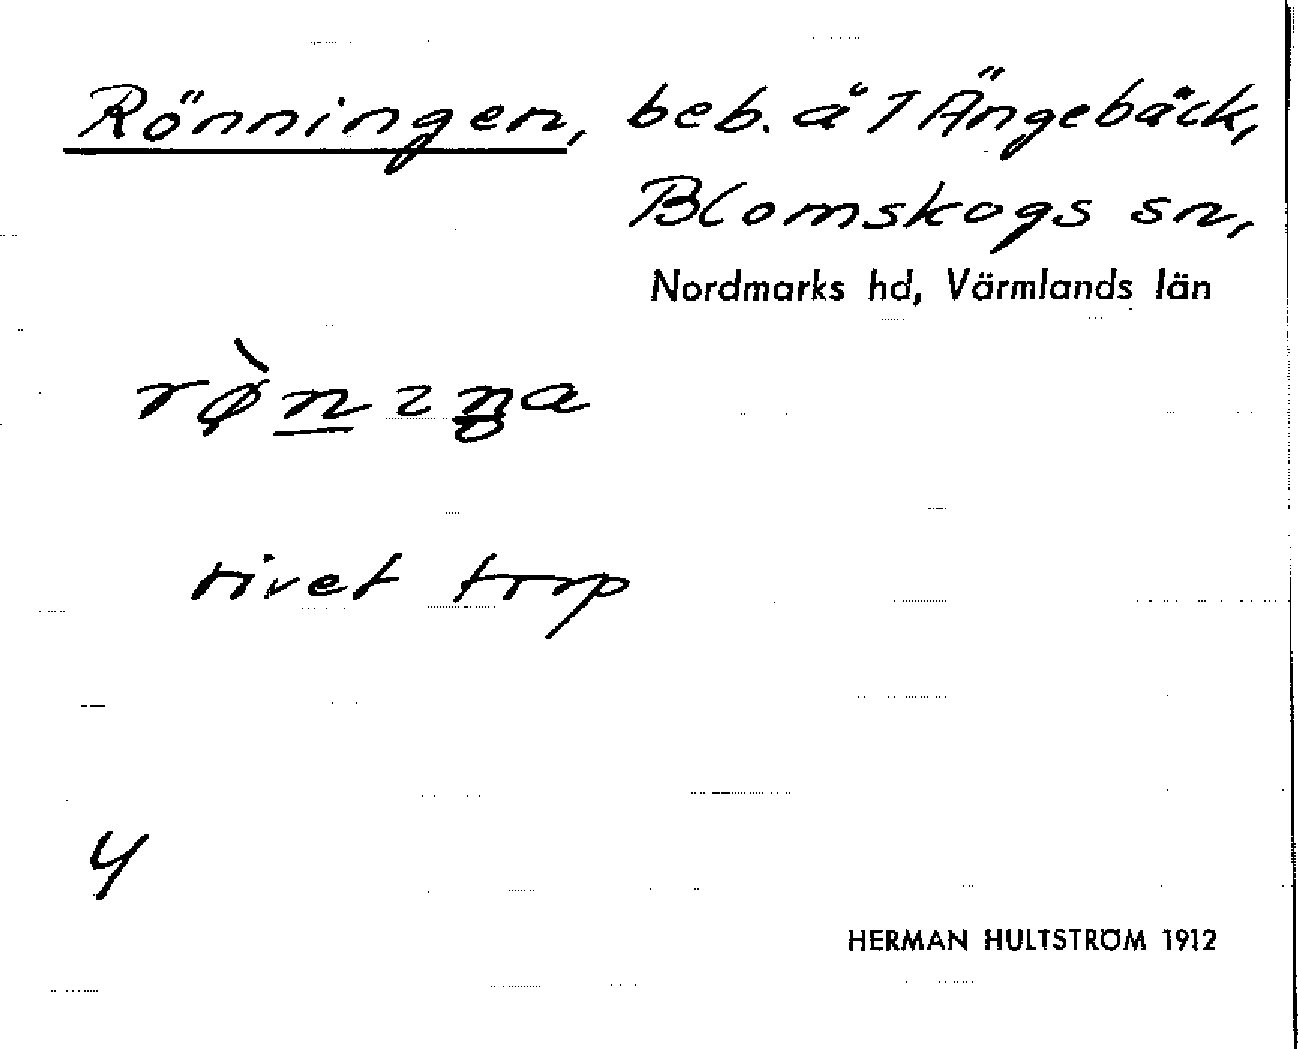 Rönningen, beb. å 1 Ängebäck,
Blomskogs sn,
Nordmarks hd, Värmlands län
rivet torp
4
HERMAN HULTSTRÖM 1912